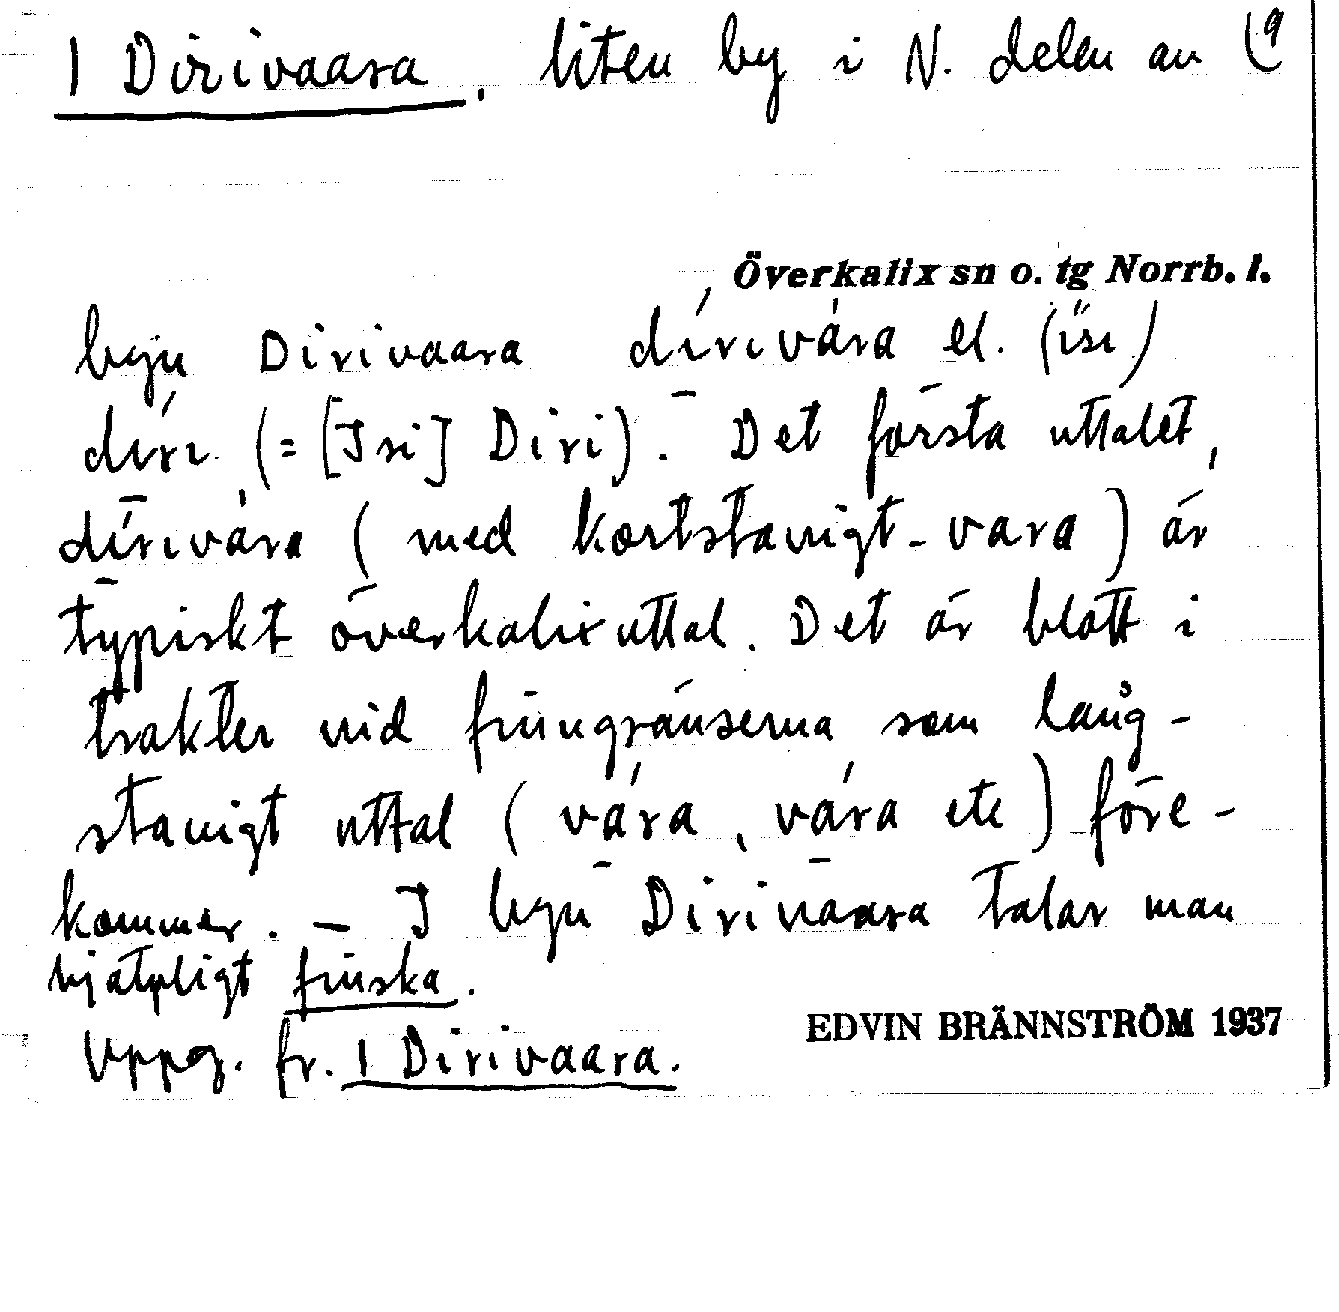 1 Dirivaara, liten by i N. delen av (9
Överkalix sn o. tg Norrb. l.
byn Dirivaara dī́rɩvàra el. (i̋sɩ)
dī́rɩ (= [Isi] Diri). – Det första uttalet,
dī́rɩvàra (med kortstavigt -vara) är
typiskt överkalixuttal. Det är blott i
trakter vid finngränserna som lång-
stavigt uttal (vā́ra, vā́ra etc) före-
kommer. – I byn Dirivaara talar man
hjälpligt finska.
Uppg. fr. 1 Dirivaara.
EDVIN BRÄNNSTRÖM 1937